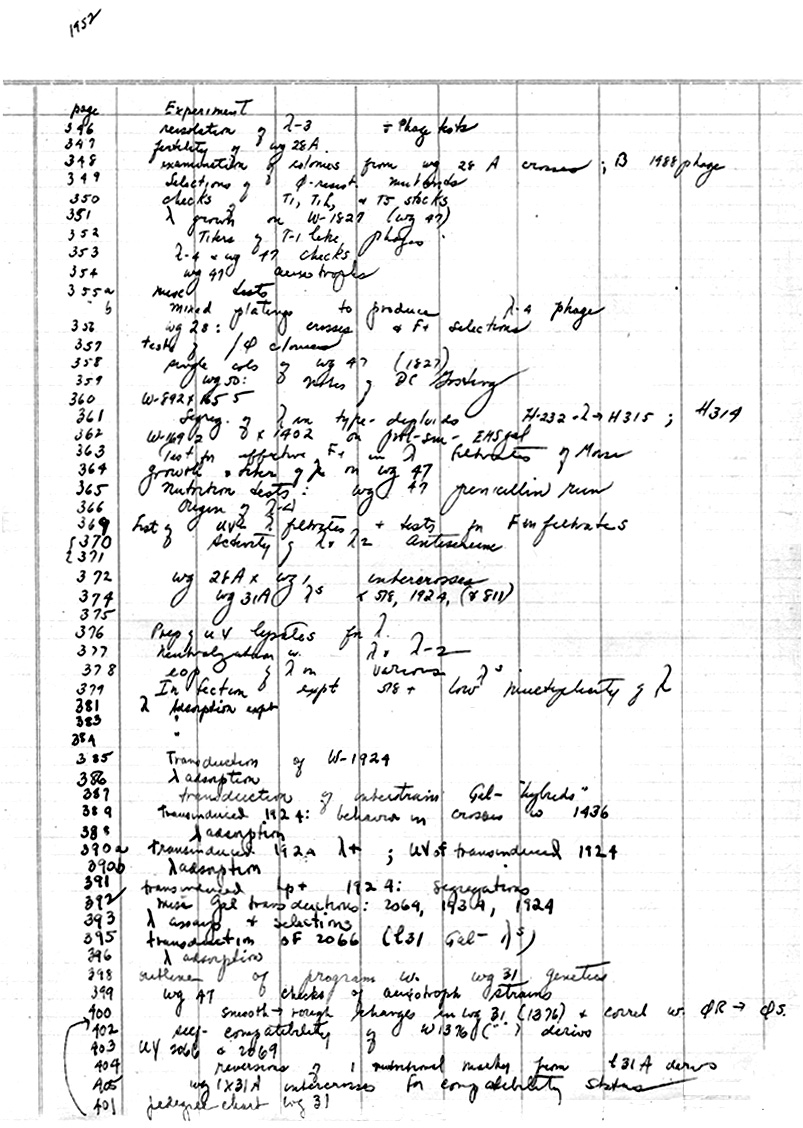 1952
page Experiment
346 resolution of λ-3 Phage tests
347 fertility of wg 28A.
348 examination of colonies from wg 28 A crosses ; B 1988 phage
349 Selections of φ-resist. mutants
350 checks of T1, T1h, & T5 stocks
351 λ growth on W-1827 (wg 47)
352 Titers of T-1 like phages
353 λ-4 & wg 47 checks
354 wg 47 auxotrophs
355a misc tests
b mixed platings to produce λ-4 phage
356 wg 28: crosses & F+ selections
357 tests of /φ
358 single cols of wg 47 (1827)
359 wg 50: notes of
360 W-892 x 1655
361 Segreg. of λ in type- diploids H-232 - λ → H315 ; H314
362 x 1402 on EMS gal
363 Test for effective F+ in λ filtrates of Morse
364 growth & titer of on wg 47
365 Nutrition tests: wg 47 penicillin run
366 Origin of λ-4
369 Test of UV λ filtrates + tests for F in filtrates
{370 Activity of λ & λ2 antiserum
{371
372 wg 28A x wg 1, intercrosses
374 wg 31A λs x 518, 1924, (& 811)
375
376 Prep of UV lysates for λ.
377 Neutralization w. λ & λ-2
378 eop of λ on various λs
379 Infection expt 518 + low multiplicity of λ
381 λ Adsorption expt
383 "
384 "
385 Transduction of W-1924
386 λ adsorption
387 transduction of interstrain Gal- "hybrids"
389 transinduced 1924: behavior in crosses w 1436
388 λ adsorption
390a transinduced 1924 λ+ ; UV of transinduced 1924
390b λ adsorption
391 transinduced Lp+ 1924: segregations
392 misc Gal transductions: 2069, 1934, 1924
393 λ assays & selections
395 transduction of 2066 (l31 Gal- λs)
396 λ adsorption
398 outline of program w. wg 31 genetics
399 wg 47 checks of auxotroph strains
400 smooth → rough changes in wg 31 (1376) & correl w. φR → φS.
402 self-compatibility of W1376 (" ") derivs
403 UV 2066 & 2069
404 reversions of 1 nutritional marker from l31A derivs
405 wg 1x31A intercrosses for compatibility status
401 pedigree chart wg 31